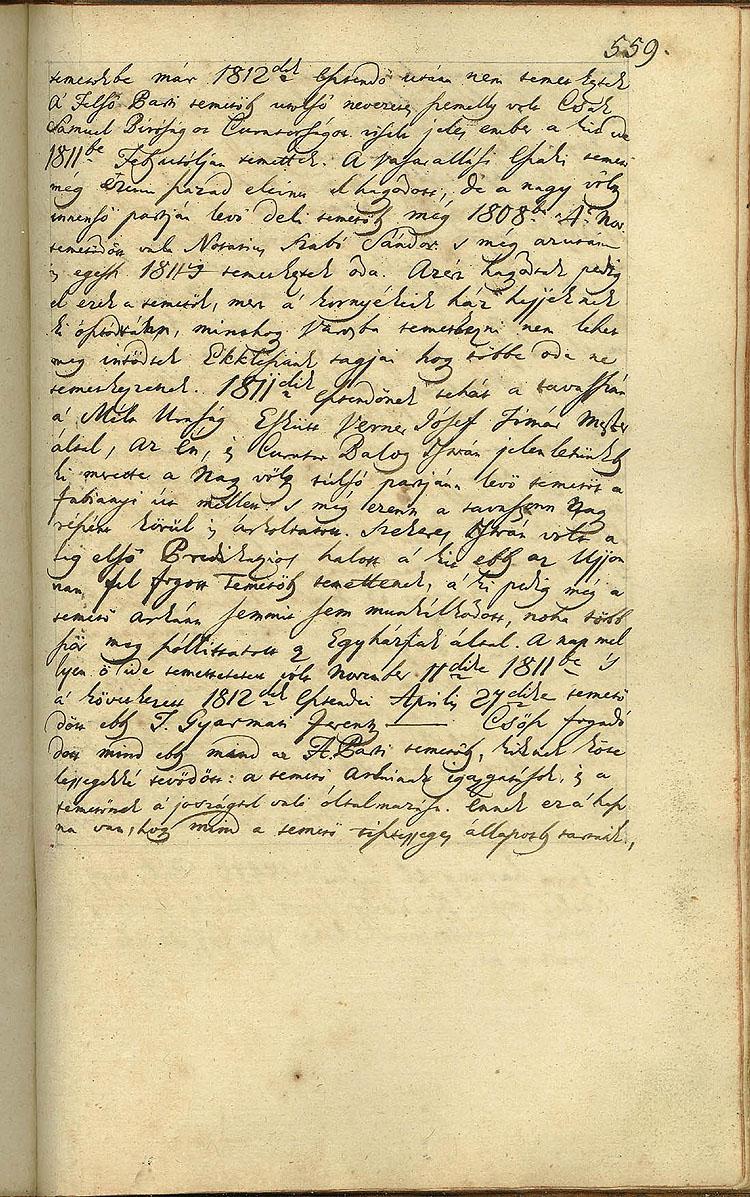 559.
temetőkbe már 1812dik esztendő után nem temetkeztek
A' Felső Parti temetők utolsó nevezetes személly volt Csák
Sámuel Bíróságot Curatorságot viselt jeles ember a' kit ide
1811be Feb. utólján temettek. A' vásárállási Északi temető
még ezenn század elein elhagódott, de a nagy völgy
innenső partján levő deli temetők még 1808be 4t Nov.
temetődött vala Notarius Szabó Sándor s még azután
is egész 1811ig temetkeztek oda. Azért hagódtak pedig
el ezek a temetők, mert a' környékeik ház hejjeknek
ki osztódtak, minthogy Városba temetkezni nem lehet
meg intődtek Ekklésiánk tagjai hogy többé oda ne
temetkezzenek. 1811dik esztendőnek tehát a tavasszán
a' Mélt. Uraság Esküdt Verner Jósef Timár Mester
által, az én, és Curator Balog István jelenlétünkbe
ki mérette a Nagy völgy túlsó partján levő temetőt a
Fabianyi út mellett s még ezenn a tavaszonn Nagy
részént körül is árkoltatta. Szekeres István volt a
leg első Predikátziós halott a' kit ebbe az Ujjon
nan fel fogott Temetőbe temettenek, a' ki pedig még a
temető árkánn semmit sem munkálkodott, noha több
ször meg szóllittatott Egyházfiak által. A nap mel
lyen ő ide temettetett vólt November 11dike 1811be 's
a' következett 1812dik Esztendei Április 27dike temető
dött ebbe T. Gyarmati Ferentz —— Csősz fogadó
dott mind ebbe mind az A. Parti temetőbe, kiknek köte
lességekké tevődött: a temető árkainak igazgatások, és a
temetőnek a' jószágtól való óltalmazása. Ennek ez a' hasz
na van, hogy mind a temető tisztességes állapotba tartatik,